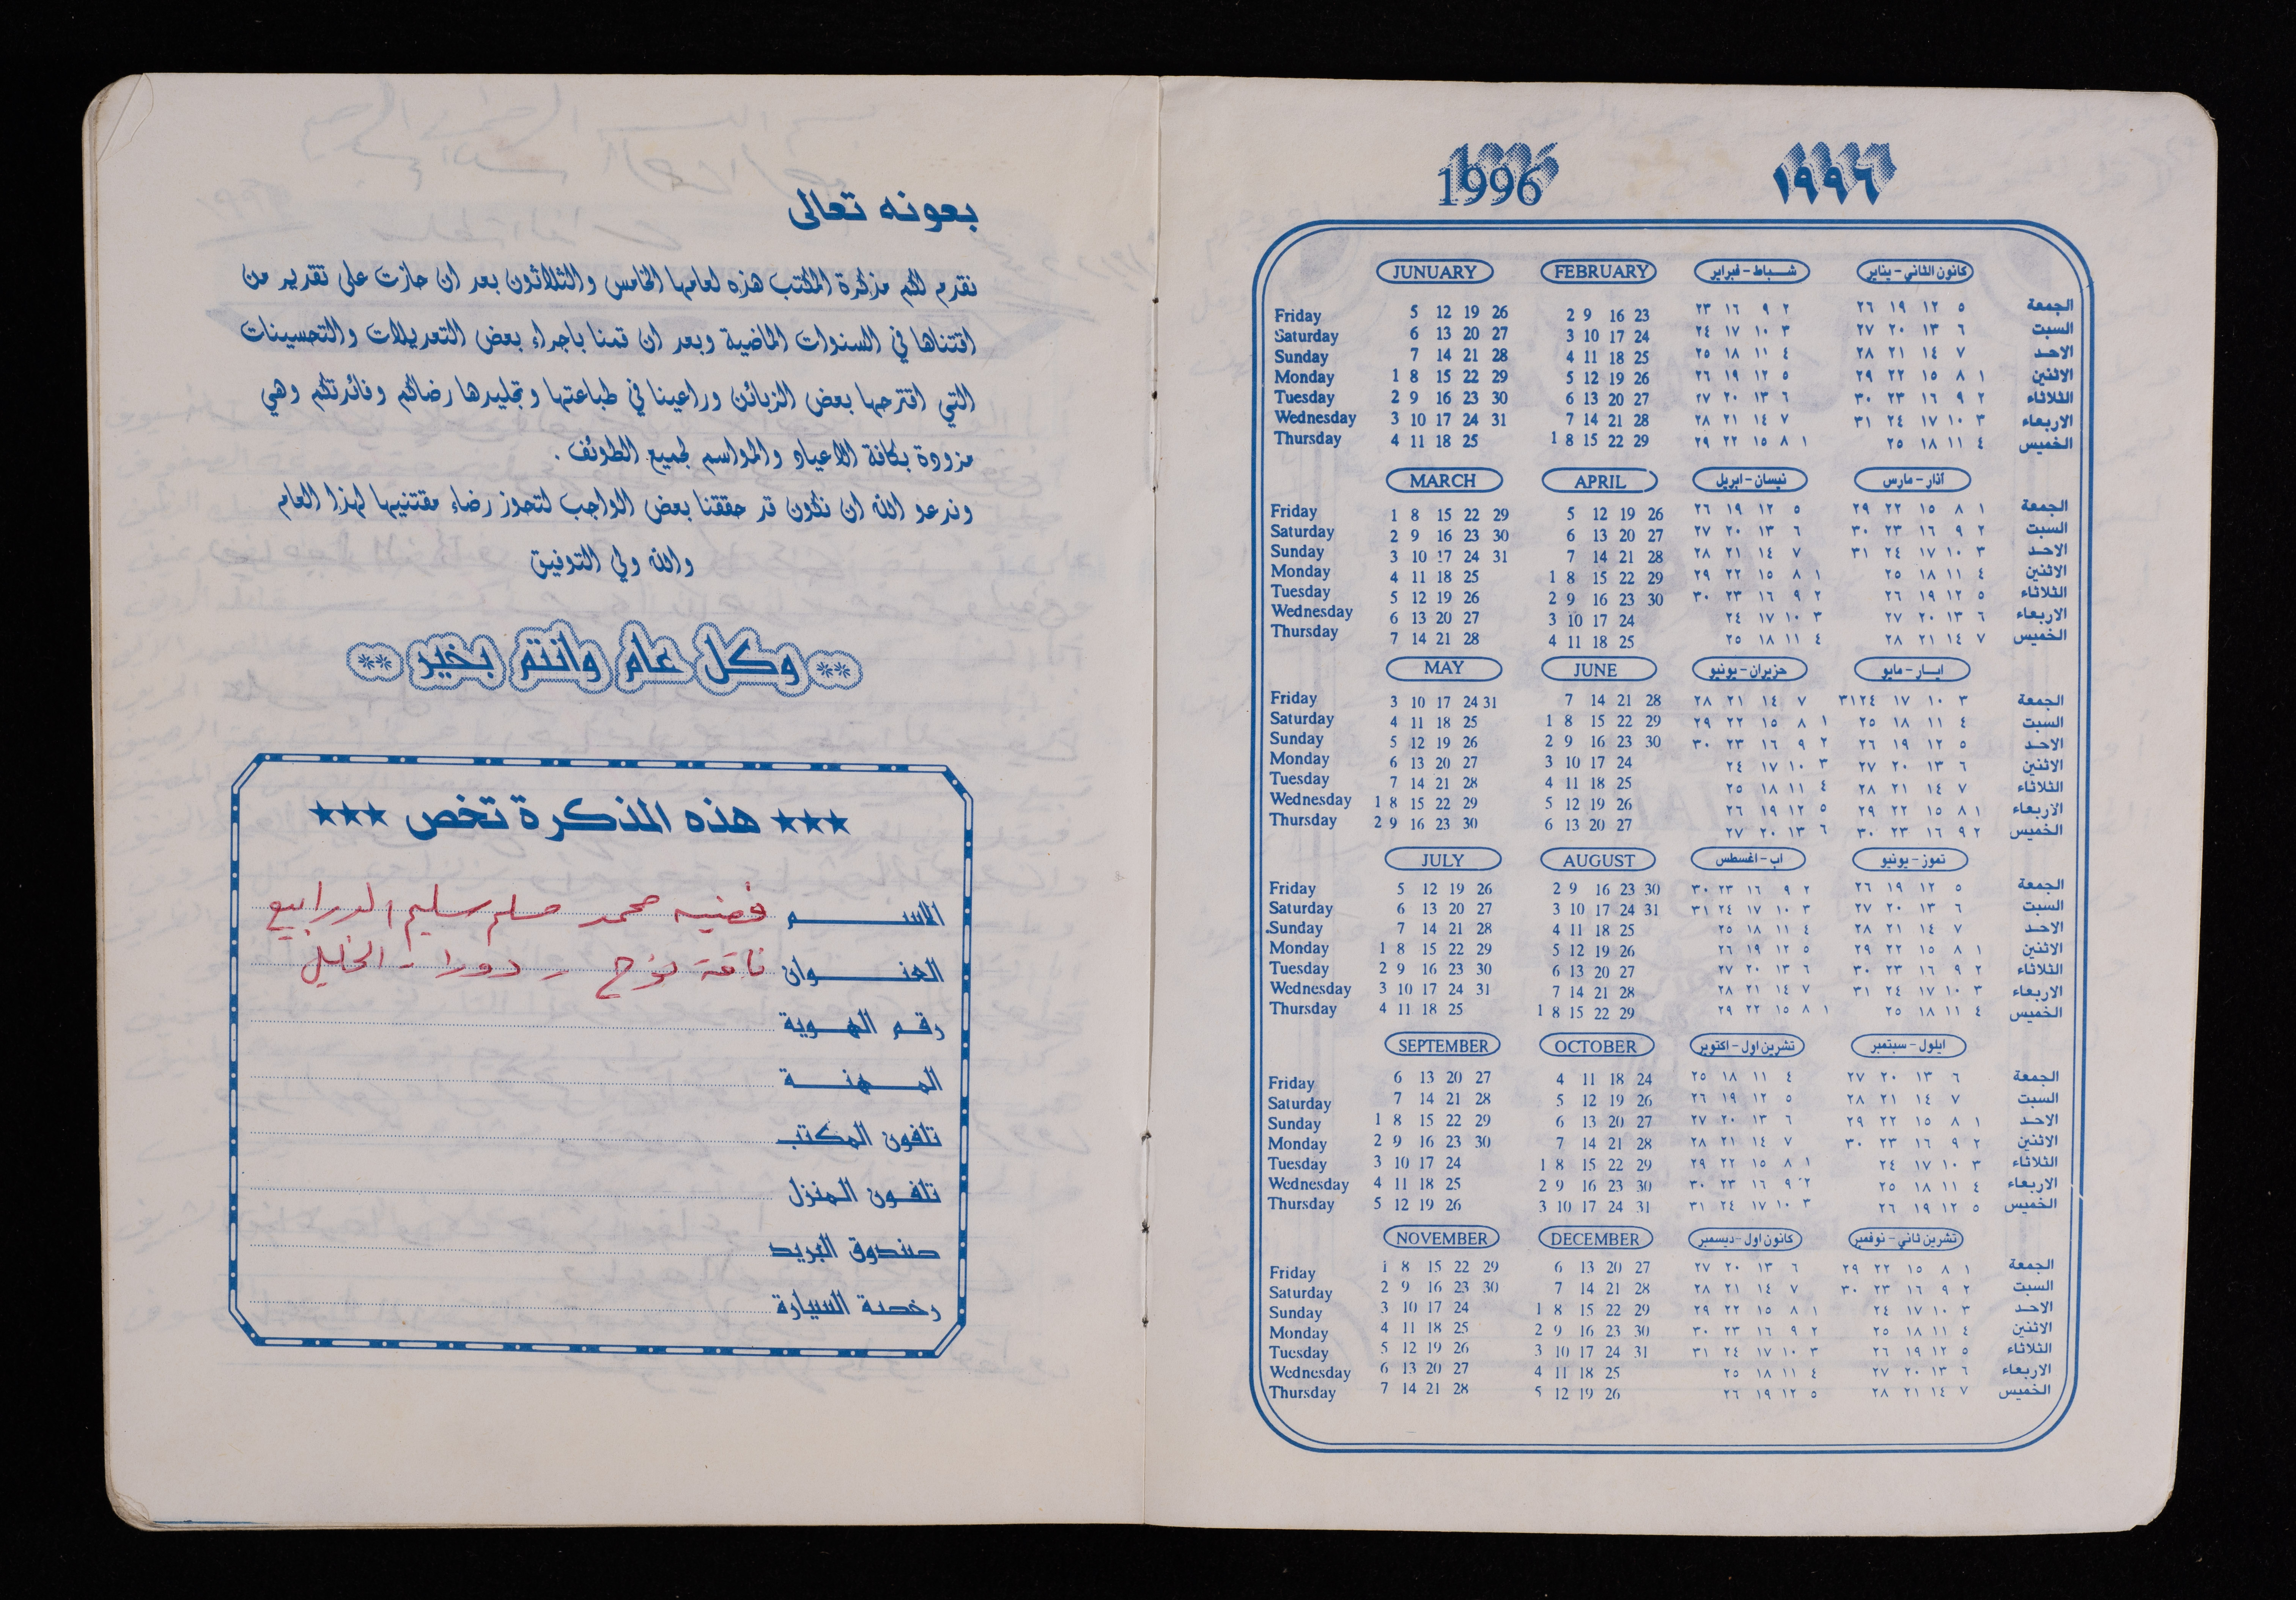 بعونه تعالى
نقدم لكم مذكرة المكتب هذه لعامها الخامس والثلاثون بعد ان حازت على تقدير من
اقتناها في السنوات الماضية وبعد ان قمنا باجراء بعض التعديلات والتحسينات
التي اقترحها بعض الزبائن وراعينا في طباعتها وتجليدها رضاكم وفائدتكم وهي
مزودة بكافة الاعياد والمواسم لجميع الطوئف .
وندعو الله ان نكون قد حققنا بعض الواجب لتحوز رضاء مقتنيها لهذا العام
والله ولي التوفيق
** وكل عام وانتم بخير **
★★★ هذه المذكرة تخص ★★★
الاسم فضيه محمد مسلم سليم الدرابيع
العنوان دورا - الخليل
رقم الهوية
المهنة
تلفون المكتب
تلفون المنزل
صندوق البريد
رخصة السيارة
1996 ١٩٩٦
JUNUARY FEBRUARY شباط - فبراير كانون الثاني - يناير
Friday 5 12 19 26 2 9 16 23 ٢ ٩ ١٦ ٢٣ ٥ ١٢ ١٩ ٢٦ الجمعة
Saturday 6 13 20 27 3 10 17 24 ٣ ١٠ ١٧ ٢٤ ٦ ١٣ ٢٠ ٢٧ السبت
Sunday 7 14 21 28 4 11 18 25 ٤ ١١ ١٨ ٢٥ ٧ ١٤ ٢١ ٢٨ الاحد
Monday 1 8 15 22 29 5 12 19 26 ٥ ١٢ ١٩ ٢٦ ١ ٨ ١٥ ٢٢ ٢٩ الاثنين
Tuesday 2 9 16 23 30 6 13 20 27 ٦ ١٣ ٢٠ ٢٧ ٢ ٩ ١٦ ٢٣ ٣٠ الثلاثاء
Wednesday 3 10 17 24 31 7 14 21 28 ٧ ١٤ ٢١ ٢٨ ٣ ١٠ ١٧ ٢٤ ٣١ الاربعاء
Thursday 4 11 18 25 1 8 15 22 29 ١ ٨ ١٥ ٢٢ ٢٩ ٤ ١١ ١٨ ٢٥ الخميس
MARCH APRIL نيسان - ابريل آذار - مارس
Friday 1 8 15 22 29 5 12 19 26 ٥ ١٢ ١٩ ٢٦ ١ ٨ ١٥ ٢٢ ٢٩ الجمعة
Saturday 2 9 16 23 30 6 13 20 27 ٦ ١٣ ٢٠ ٢٧ ٢ ٩ ١٦ ٢٣ ٣٠ السبت
Sunday 3 10 17 24 31 7 14 21 28 ٧ ١٤ ٢١ ٢٨ ٣ ١٠ ١٧ ٢٤ ٣١ الاحد
Monday 4 11 18 25 1 8 15 22 29 ١ ٨ ١٥ ٢٢ ٢٩ ٤ ١١ ١٨ ٢٥ الاثنين
Tuesday 5 12 19 26 2 9 16 23 30 ٢ ٩ ١٦ ٢٣ ٣٠ ٥ ١٢ ١٩ ٢٦ الثلاثاء
Wednesday 6 13 20 27 3 10 17 24 ٣ ١٠ ١٧ ٢٤ ٦ ١٣ ٢٠ ٢٧ الاربعاء
Thursday 7 14 21 28 4 11 18 25 ٤ ١١ ١٨ ٢٥ ٧ ١٤ ٢١ ٢٨ الخميس
MAY JUNE حزيران - يونيو ايار - مايو
Friday 3 10 17 24 31 7 14 21 28 ٧ ١٤ ٢١ ٢٨ ٣ ١٠ ١٧ ٢٤ ٣١ الجمعة
Saturday 4 11 18 25 1 8 15 22 29 ١ ٨ ١٥ ٢٢ ٢٩ ٤ ١١ ١٨ ٢٥ السبت
Sunday 5 12 19 26 2 9 16 23 30 ٢ ٩ ١٦ ٢٣ ٣٠ ٥ ١٢ ١٩ ٢٦ الاحد
Monday 6 13 20 27 3 10 17 24 ٣ ١٠ ١٧ ٢٤ ٦ ١٣ ٢٠ ٢٧ الاثنين
Tuesday 7 14 21 28 4 11 18 25 ٤ ١١ ١٨ ٢٥ ٧ ١٤ ٢١ ٢٨ الثلاثاء
Wednesday 1 8 15 22 29 5 12 19 26 ٥ ١٢ ١٩ ٢٦ ١ ٨ ١٥ ٢٢ ٢٩ الاربعاء
Thursday 2 9 16 23 30 6 13 20 27 ٦ ١٣ ٢٠ ٢٧ ٢ ٩ ١٦ ٢٣ ٣٠ الخميس
JULY AUGUST اب - اغسطس تموز - يونيو
Friday 5 12 19 26 2 9 16 23 30 ٢ ٩ ١٦ ٢٣ ٣٠ ٥ ١٢ ١٩ ٢٦ الجمعة
Saturday 6 13 20 27 3 10 17 24 31 ٣ ١٠ ١٧ ٢٤ ٣١ ٦ ١٣ ٢٠ ٢٧ السبت
Sunday 7 14 21 28 4 11 18 25 ٤ ١١ ١٨ ٢٥ ٧ ١٤ ٢١ ٢٨ الاحد
Monday 1 8 15 22 29 5 12 19 26 ٥ ١٢ ١٩ ٢٦ ١ ٨ ١٥ ٢٢ ٢٩ الاثنين
Tuesday 2 9 16 23 30 6 13 20 27 ٦ ١٣ ٢٠ ٢٧ ٢ ٩ ١٦ ٢٣ ٣٠ الثلاثاء
Wednesday 3 10 17 24 31 7 14 21 28 ٧ ١٤ ٢١ ٢٨ ٣ ١٠ ١٧ ٢٤ ٣١ الاربعاء
Thursday 4 11 18 25 1 8 15 22 29 ١ ٨ ١٥ ٢٢ ٢٩ ٤ ١١ ١٨ ٢٥ الخميس
SEPTEMBER OCTOBER تشرين اول - اكتوبر ايلول - سبتمبر
Friday 6 13 20 27 4 11 18 24 ٤ ١١ ١٨ ٢٥ ٦ ١٣ ٢٠ ٢٧ الجمعة
Saturday 7 14 21 28 5 12 19 26 ٥ ١٢ ١٩ ٢٦ ٧ ١٤ ٢١ ٢٨ السبت
Sunday 1 8 15 22 29 6 13 20 27 ٦ ١٣ ٢٠ ٢٧ ١ ٨ ١٥ ٢٢ ٢٩ الاحد
Monday 2 9 16 23 30 7 14 21 28 ٧ ١٤ ٢١ ٢٨ ٢ ٩ ١٦ ٢٣ ٣٠ الاثنين
Tuesday 3 10 17 24 1 8 15 22 29 ١ ٨ ١٥ ٢٢ ٢٩ ٣ ١٠ ١٧ ٢٤ الثلاثاء
Wednesday 4 11 18 25 2 9 16 23 30 ٢ ٩ ١٦ ٢٣ ٣٠ ٤ ١١ ١٨ ٢٥ الاربعاء
Thursday 5 12 19 26 3 10 17 24 31 ٣ ١٠ ١٧ ٢٤ ٣١ ٥ ١٢ ١٩ ٢٦ الخميس
NOVEMBER DECEMBER كانون اول - ديسمبر تشرين ثاني - نوفمبر
Friday 1 8 15 22 29 6 13 20 27 ٦ ١٣ ٢٠ ٢٧ ١ ٨ ١٥ ٢٢ ٢٩ الجمعة
Saturday 2 9 16 23 30 7 14 21 28 ٧ ١٤ ٢١ ٢٨ ٢ ٩ ١٦ ٢٣ ٣٠ السبت
Sunday 3 10 17 24 1 8 15 22 29 ١ ٨ ١٥ ٢٢ ٢٩ ٣ ١٠ ١٧ ٢٤ الاحد
Monday 4 11 18 25 2 9 16 23 30 ٢ ٩ ١٦ ٢٣ ٣٠ ٤ ١١ ١٨ ٢٥ الاثنين
Tuesday 5 12 19 26 3 10 17 24 31 ٣ ١٠ ١٧ ٢٤ ٣١ ٥ ١٢ ١٩ ٢٦ الثلاثاء
Wednesday 6 13 20 27 4 11 18 25 ٤ ١١ ١٨ ٢٥ ٦ ١٣ ٢٠ ٢٧ الاربعاء
Thursday 7 14 21 28 5 12 19 26 ٥ ١٢ ١٩ ٢٦ ٧ ١٤ ٢١ ٢٨ الخميس